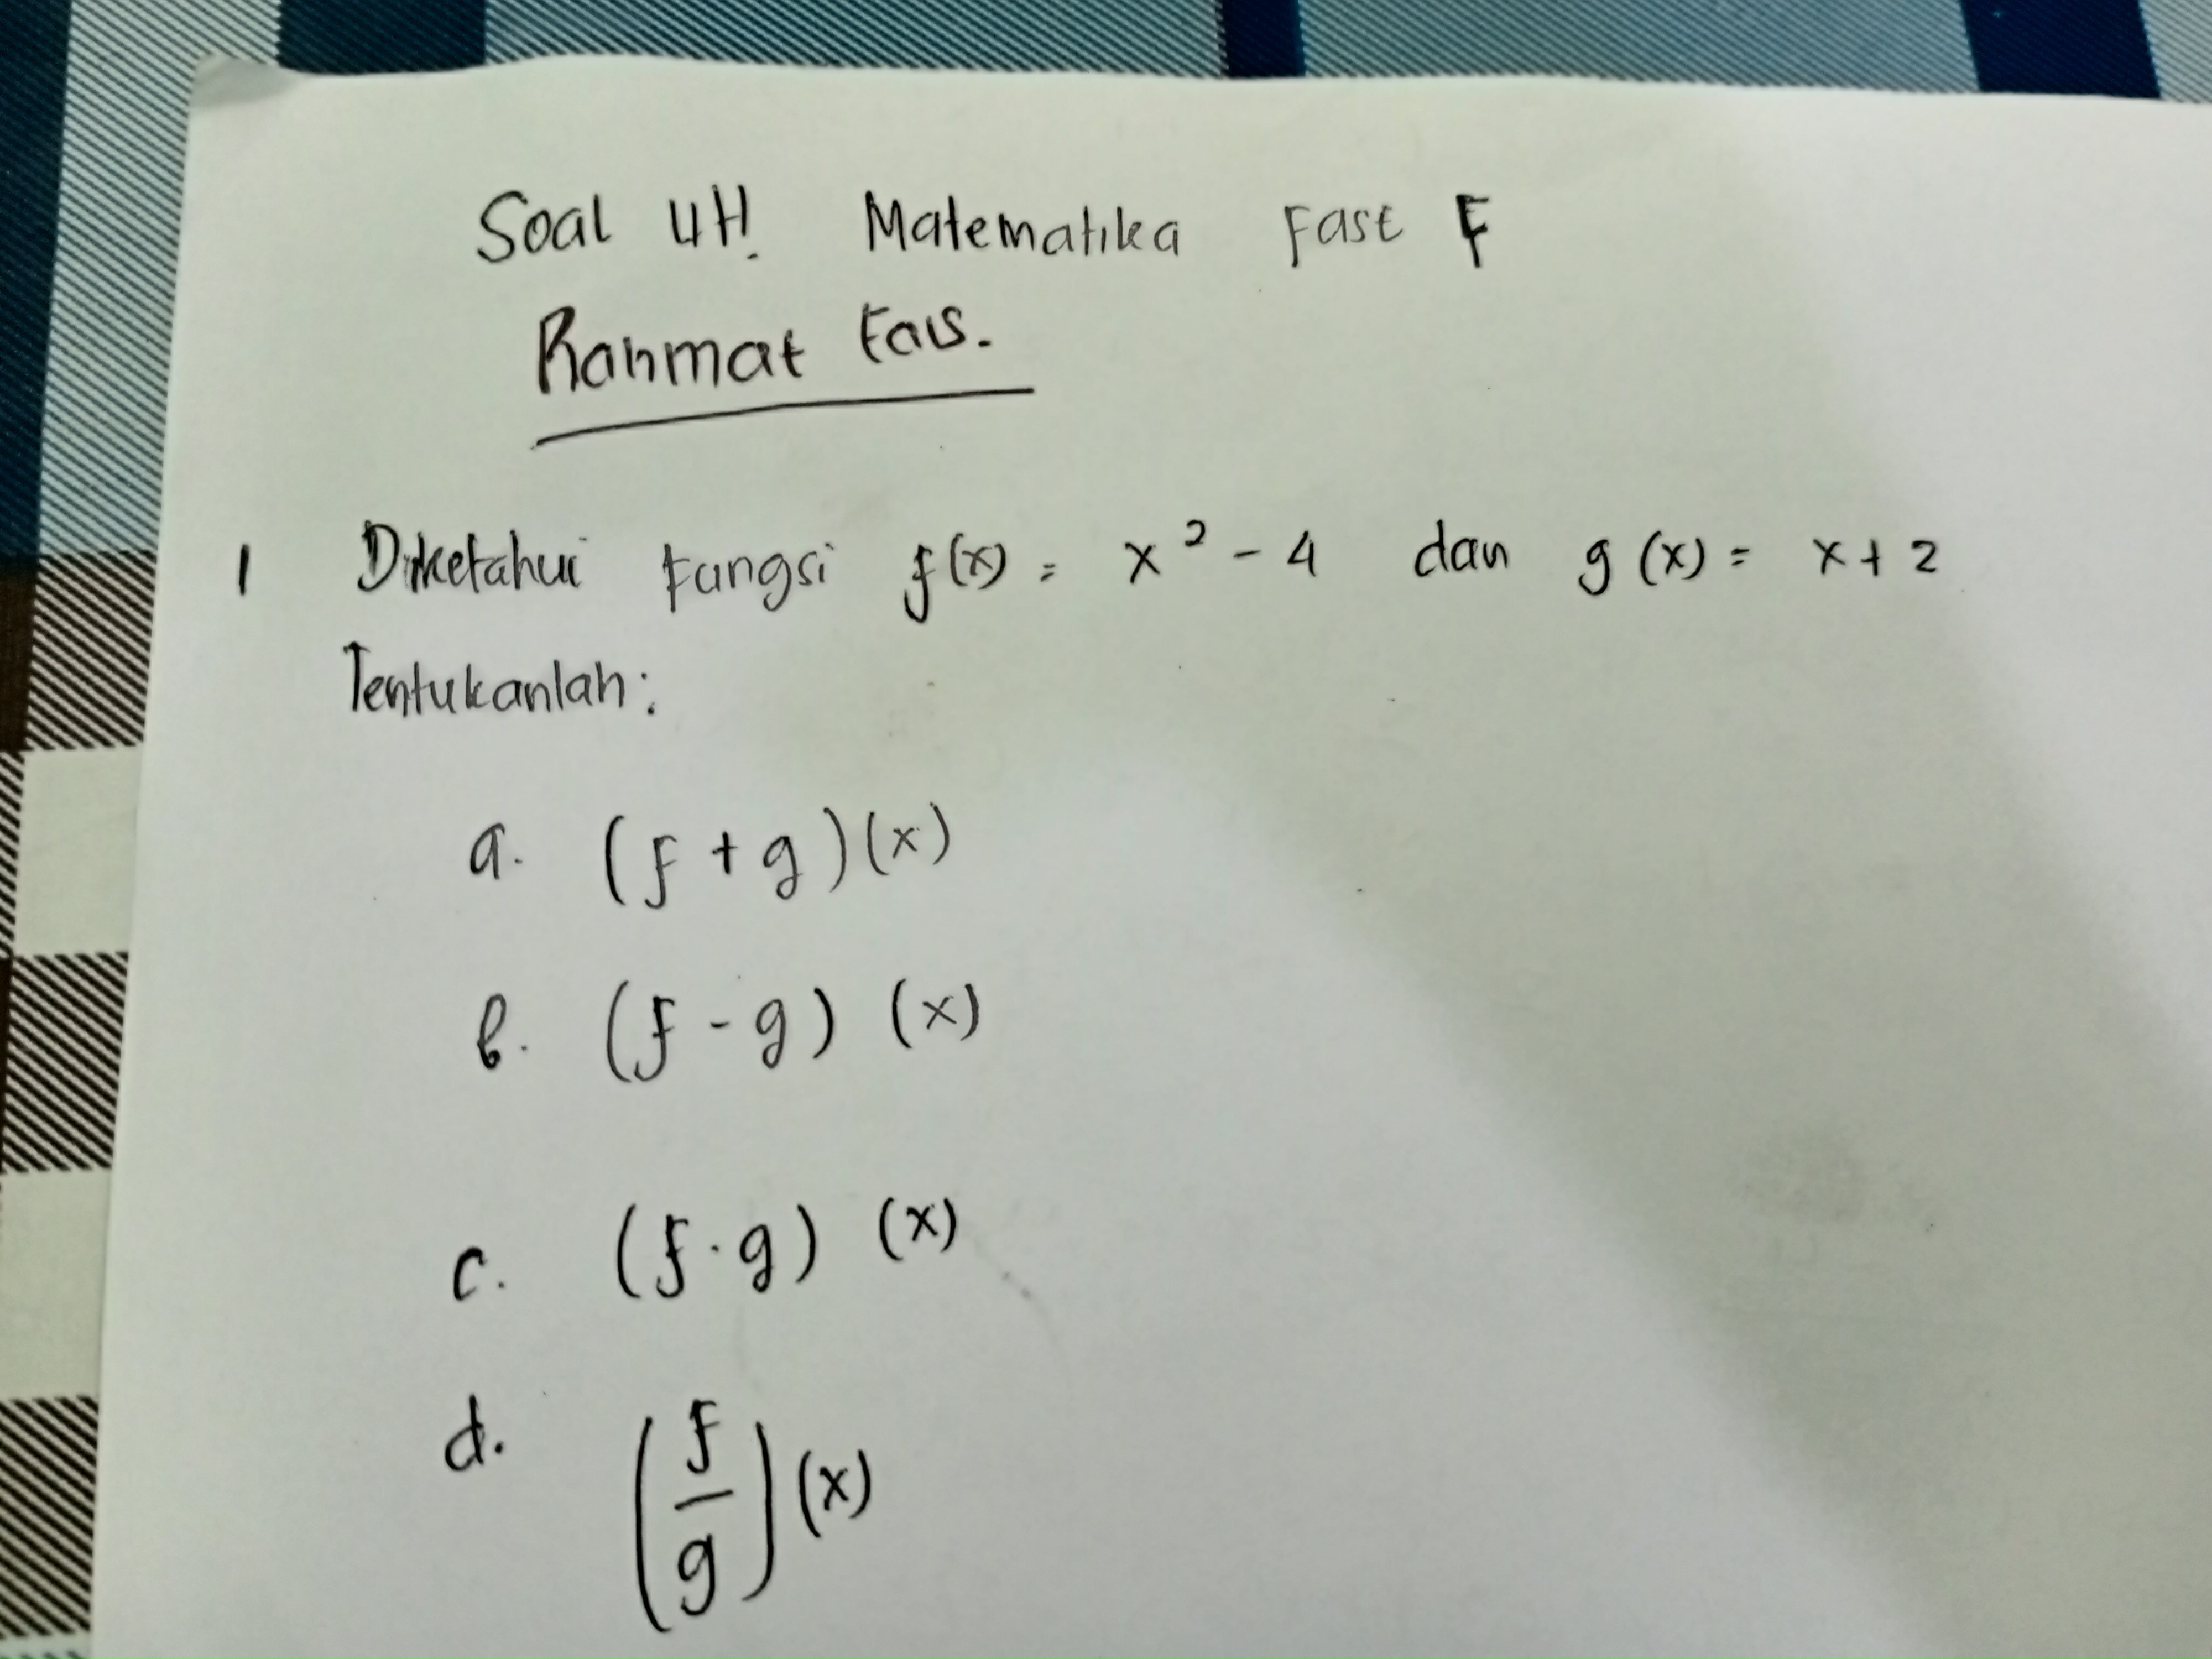 Soal UH. Matematika Fast F
Rahmat Fais.
1 Diketahui Fungsi f(x) = x² - 4 dan g(x) = x + 2
Tentukanlah:
a. (f + g)(x)
b. (f - g) (x)
c. (f · g) (x)
d. (f/g)(x)